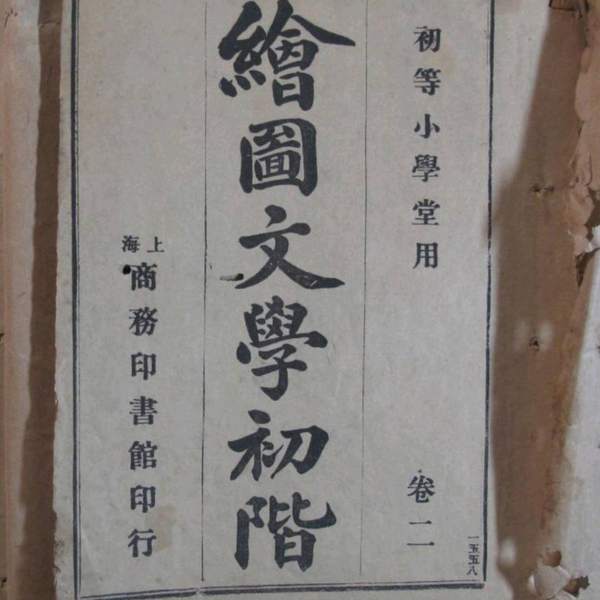 初等小學堂用
卷二
一五五八
繪圖文學初階
上海
商務印書館印行